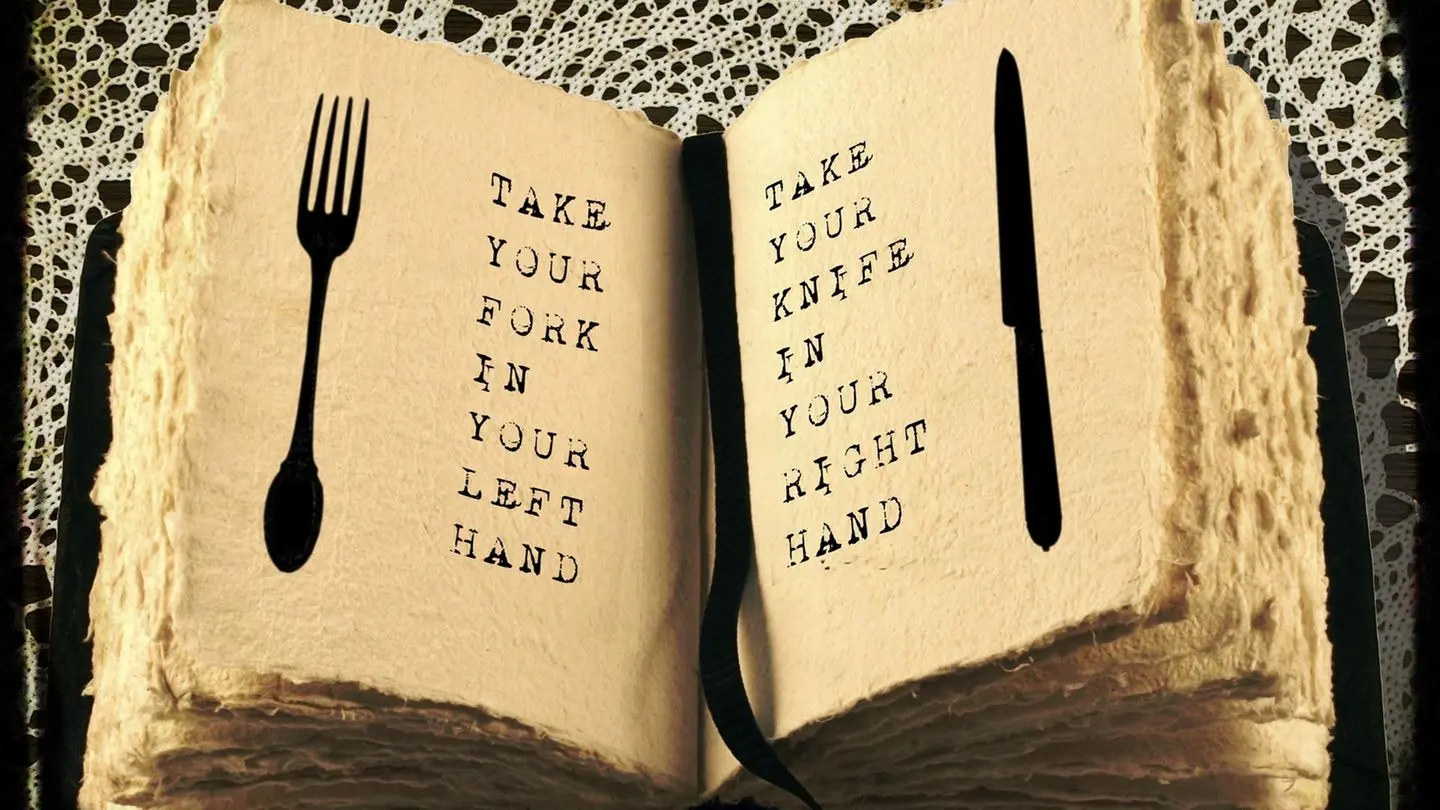 TAKE
YOUR
FORK
IN
YOUR
LEFT
HAND
TAKE
YOUR
KNIFE
IN
YOUR
RIGHT
HAND